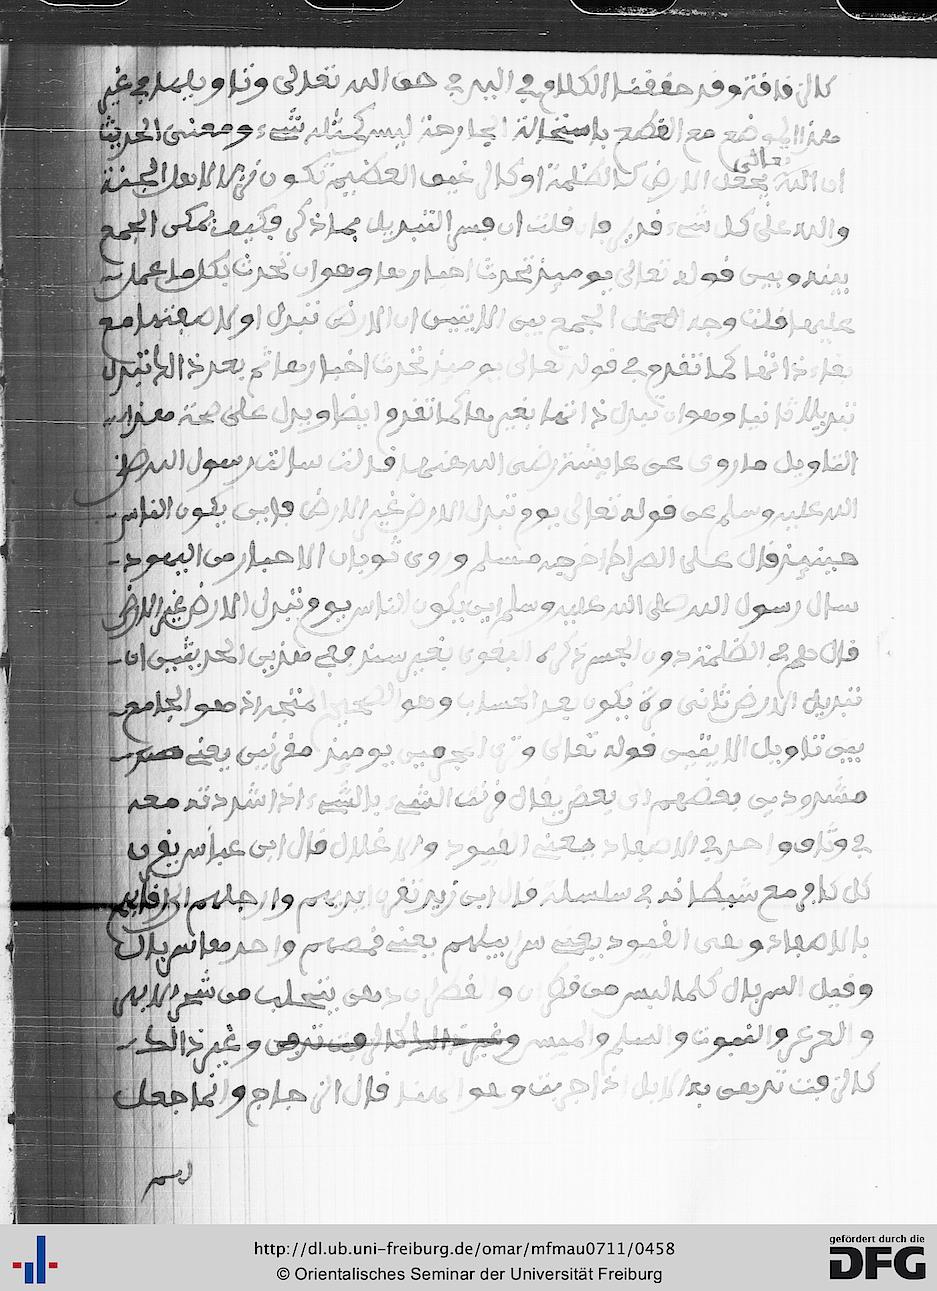 كالرقاقة وقد حققنا الكلام في اليد في حق الله تعالى وتاويلها في غير
هذا الموضع مع القطع باستحالة الجارحة ليس كمثله شيء ومعنى الحديث
ان الله تعالى يجعل الارض كالظلمة او كالرغيف العظيم تكون نزلا لاهل الجنة
والله على كل شيء قدير فان قلت ان فسر التبديل بما ذكر فكيف يمكن الجمع
بينه وبين قوله تعالى يومئذ تحدث اخبارها وهو ان تحدث بكل ما عمل
عليها قلت وجه الجمع بين الايتين ان الارض تبدل اولا صفتها مع
بقاء ذاتها كما تقدم في قوله تعالى يومئذ تحدث اخبارها ثم بعد ذالك تبدل
تبديلا ثانيا وهو ان تبدل ذاتها بغيرها كما تقدم ايضا ويدل على صحة هذا
التاويل ما روي عن عايشة رضي الله عنها قالت سالت رسول الله صلى
الله عليه وسلم عن قوله تعالى يوم تبدل الارض غير الارض فاين يكون الناس
حينئذ قال على الصراط اخرجه مسلم وروى ثوبان ان حبرا من اليهود
سال رسول الله صلى الله عليه وسلم اين يكون الناس يوم تبدل الارض غير الارض
قال هم في الظلمة دون الجسر ذكره البغوي بغير سند ففي هذين الحديثين ان
تبديل الارض ثاني مرة يكون بعد الحساب وهو الصحيح اذ هو الجامع
بين تاويل الايتين قوله تعالى وترى المجرمين يومئذ مقرنين يعني
مشدودين بعضهم الى بعض يقال قرنت الشيء بالشيء اذا شددته معه
في وثاق واحد في الاصفاد يعني القيود والاغلال قال ابن عباس يقرن
كل كافر مع شيطانه في سلسلة قال ابن زيد تقرن ايديهم وارجلهم الى رقابهم
بالاصفاد وهي القيود يعني سرابيلهم يعني قمصهم واحدها سربال
وقيل السربال كلما لبس من قطران والقطران دهن يتحلب من شجر الابهل
والعرعر والتوت وغير ذالك
كالزفت تدهن به الابل اذا جربت وهو الهناء قال الزجاج وانما جعل
لهم
http://dl.ub.uni-freiburg.de/omar/mfmau0711/0458
© Orientalisches Seminar der Universität Freiburg
gefördert durch die
DFG